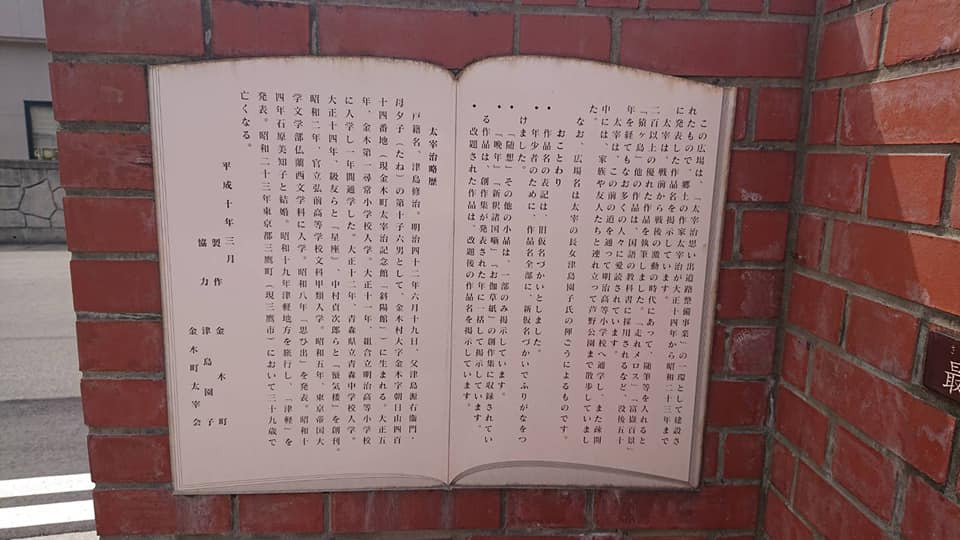 この広場は、「太宰治思い出道路整備事業」の一環として建設さ
れたもので、郷土の作家太宰治が大正十四年から昭和二十三年まで
に発表した作品名を掲示しています。
太宰は、戦前から戦後の激動の時代にあって、随筆等を入れると
二百以上の優れた作品を執筆しました。「走れメロス」「富嶽百景」
「猿ヶ島」他の作品は、国語の教科書に採用されるなど、没後五十
年を経てもなお多くの人々に愛読されています。
太宰は、この前の道を通って明治高等小学校へ通学し、また疎開
中には、家族や友人たちと連れ立って芦野公園まで散歩していまし
た。
なお、広場名は太宰の長女津島園子氏の揮ごうによるものです。
おことわり
• 作品名の表記は、旧仮名づかいとしました。
• 年少者のために、作品名全部に、新仮名づかいでふりがなをつ
けました。
• 「随想」その他の小品は、一部のみ掲示しています。
• 「晩年」「新釈諸国噺」「お伽草紙」の創作集に収録されてい
る作品は、創作集が発表された年に一括して掲示しています。
• 改題された作品は、改題後の作品名を掲示しています。
太宰治略歴
戸籍名、津島修治。明治四十二年六月十九日、父津島源右衛門・
母夕子（たね）の第十子六男として、金木村大字金木字朝日山四百
十四番地（現金木町太宰治記念館「斜陽館」）に生まれる。大正五
年、金木第一尋常小学校入学。大正十一年、組合立明治高等小学校
に入学し一年間通学した。大正十二年、青森県立青森中学校入学。
大正十四年、級友らと「星座」、中村貞次郎らと「蜃気楼」を創刊。
昭和二年、官立弘前高等学校文科甲類入学。昭和五年、東京帝国大
学文学部仏蘭西文学科に入学。昭和八年「思ひ出」を発表。昭和十
四年石原美知子と結婚。昭和十九年津軽地方を旅行し、「津軽」を
発表。昭和二十三年東京都三鷹町（現三鷹市）において三十九歳で
亡くなる。
平成十年三月
製作 金木町
協力 津島園子
金木町太宰会
最